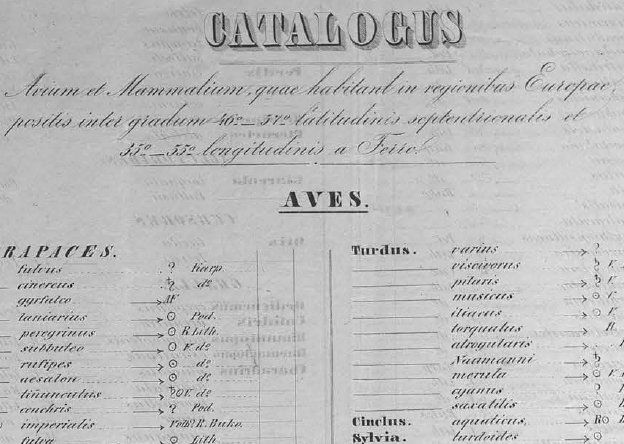 CATALOGUS
Avium et Mammalium, quae habitant in regionibus Europae,
positis inter gradum 46º—57º latitudinis septentrionalis et
35º—55º longitudinis a Ferro.
AVES.
RAPACES.
fulvus ? Karp
cinereus dº
gyrfalco W
laniarius Pod.
peregrinus R Lith.
subbuteo V. dº
rufipes dº
aesalon dº
tinunculus V. dº
cenchris ? Pod.
imperialis R. Buko.
fulva Lith
Turdus. varius ?
viscivorus V.
pilaris V.
musicus V.
iliacus V.
torquatus R.
atrogularis
Naumanni
merula V.
cyanus ?
saxatilis
Cinclus. aquaticus R
Sylvia. turdoides